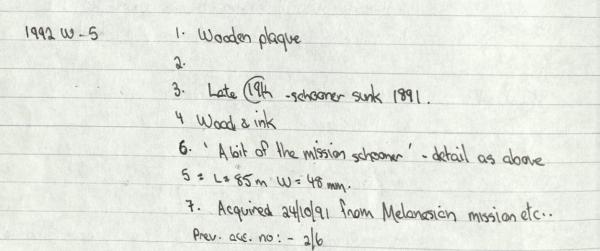 1992 W-5 1. Wooden plaque
2.
3. Late 19th -schooner sunk 1891.
4 Wood & ink
6. 'A bit of the mission schooner' - detail as above
5 = L=85m W=48mm.
7. Acquired 24/10/91 from Melanesian mission etc..
Prev. acc. no:- 2/6